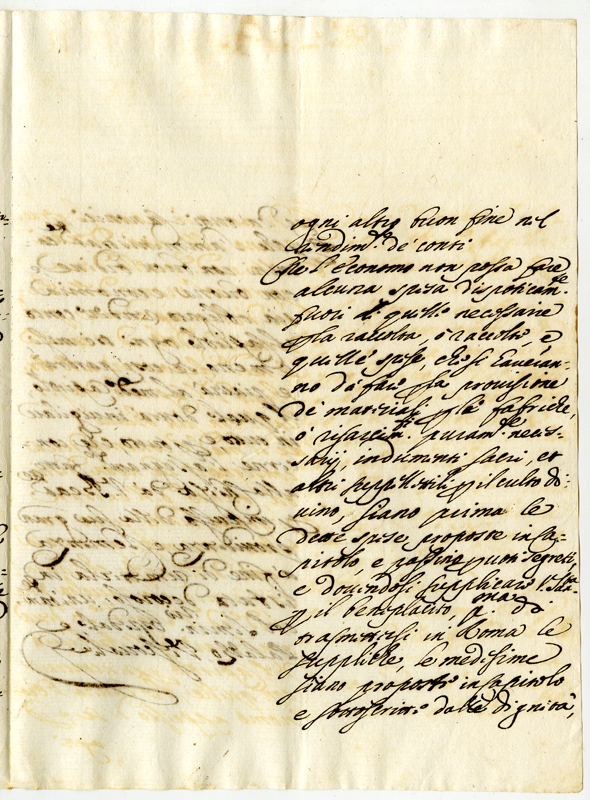 ogni altro buon fine nel
rendim.to de conti
Che l'Economo non possa fare
alcuna spesa dispoticam.te
fuori di quelle necessarie
p la raccolta, ò raccolti, e
quelle spese, che si haveran-
no da fare p la provisione
de materiali p le fabriche,
ò risarcim.ti puram.te neces-
sarij, indumenti sacri, et
altri suppellettili p il culto di-
uino, siano prima le
dette spese proposte in Ca-
pitolo, e passino p uoti segreti,
e douendosi supplicare
p il beneplacito, p.ma di
trasmettersi in Roma le
suppliche, le medesime
siano proposte in Capitolo
e sottoscritte dalle dignità,